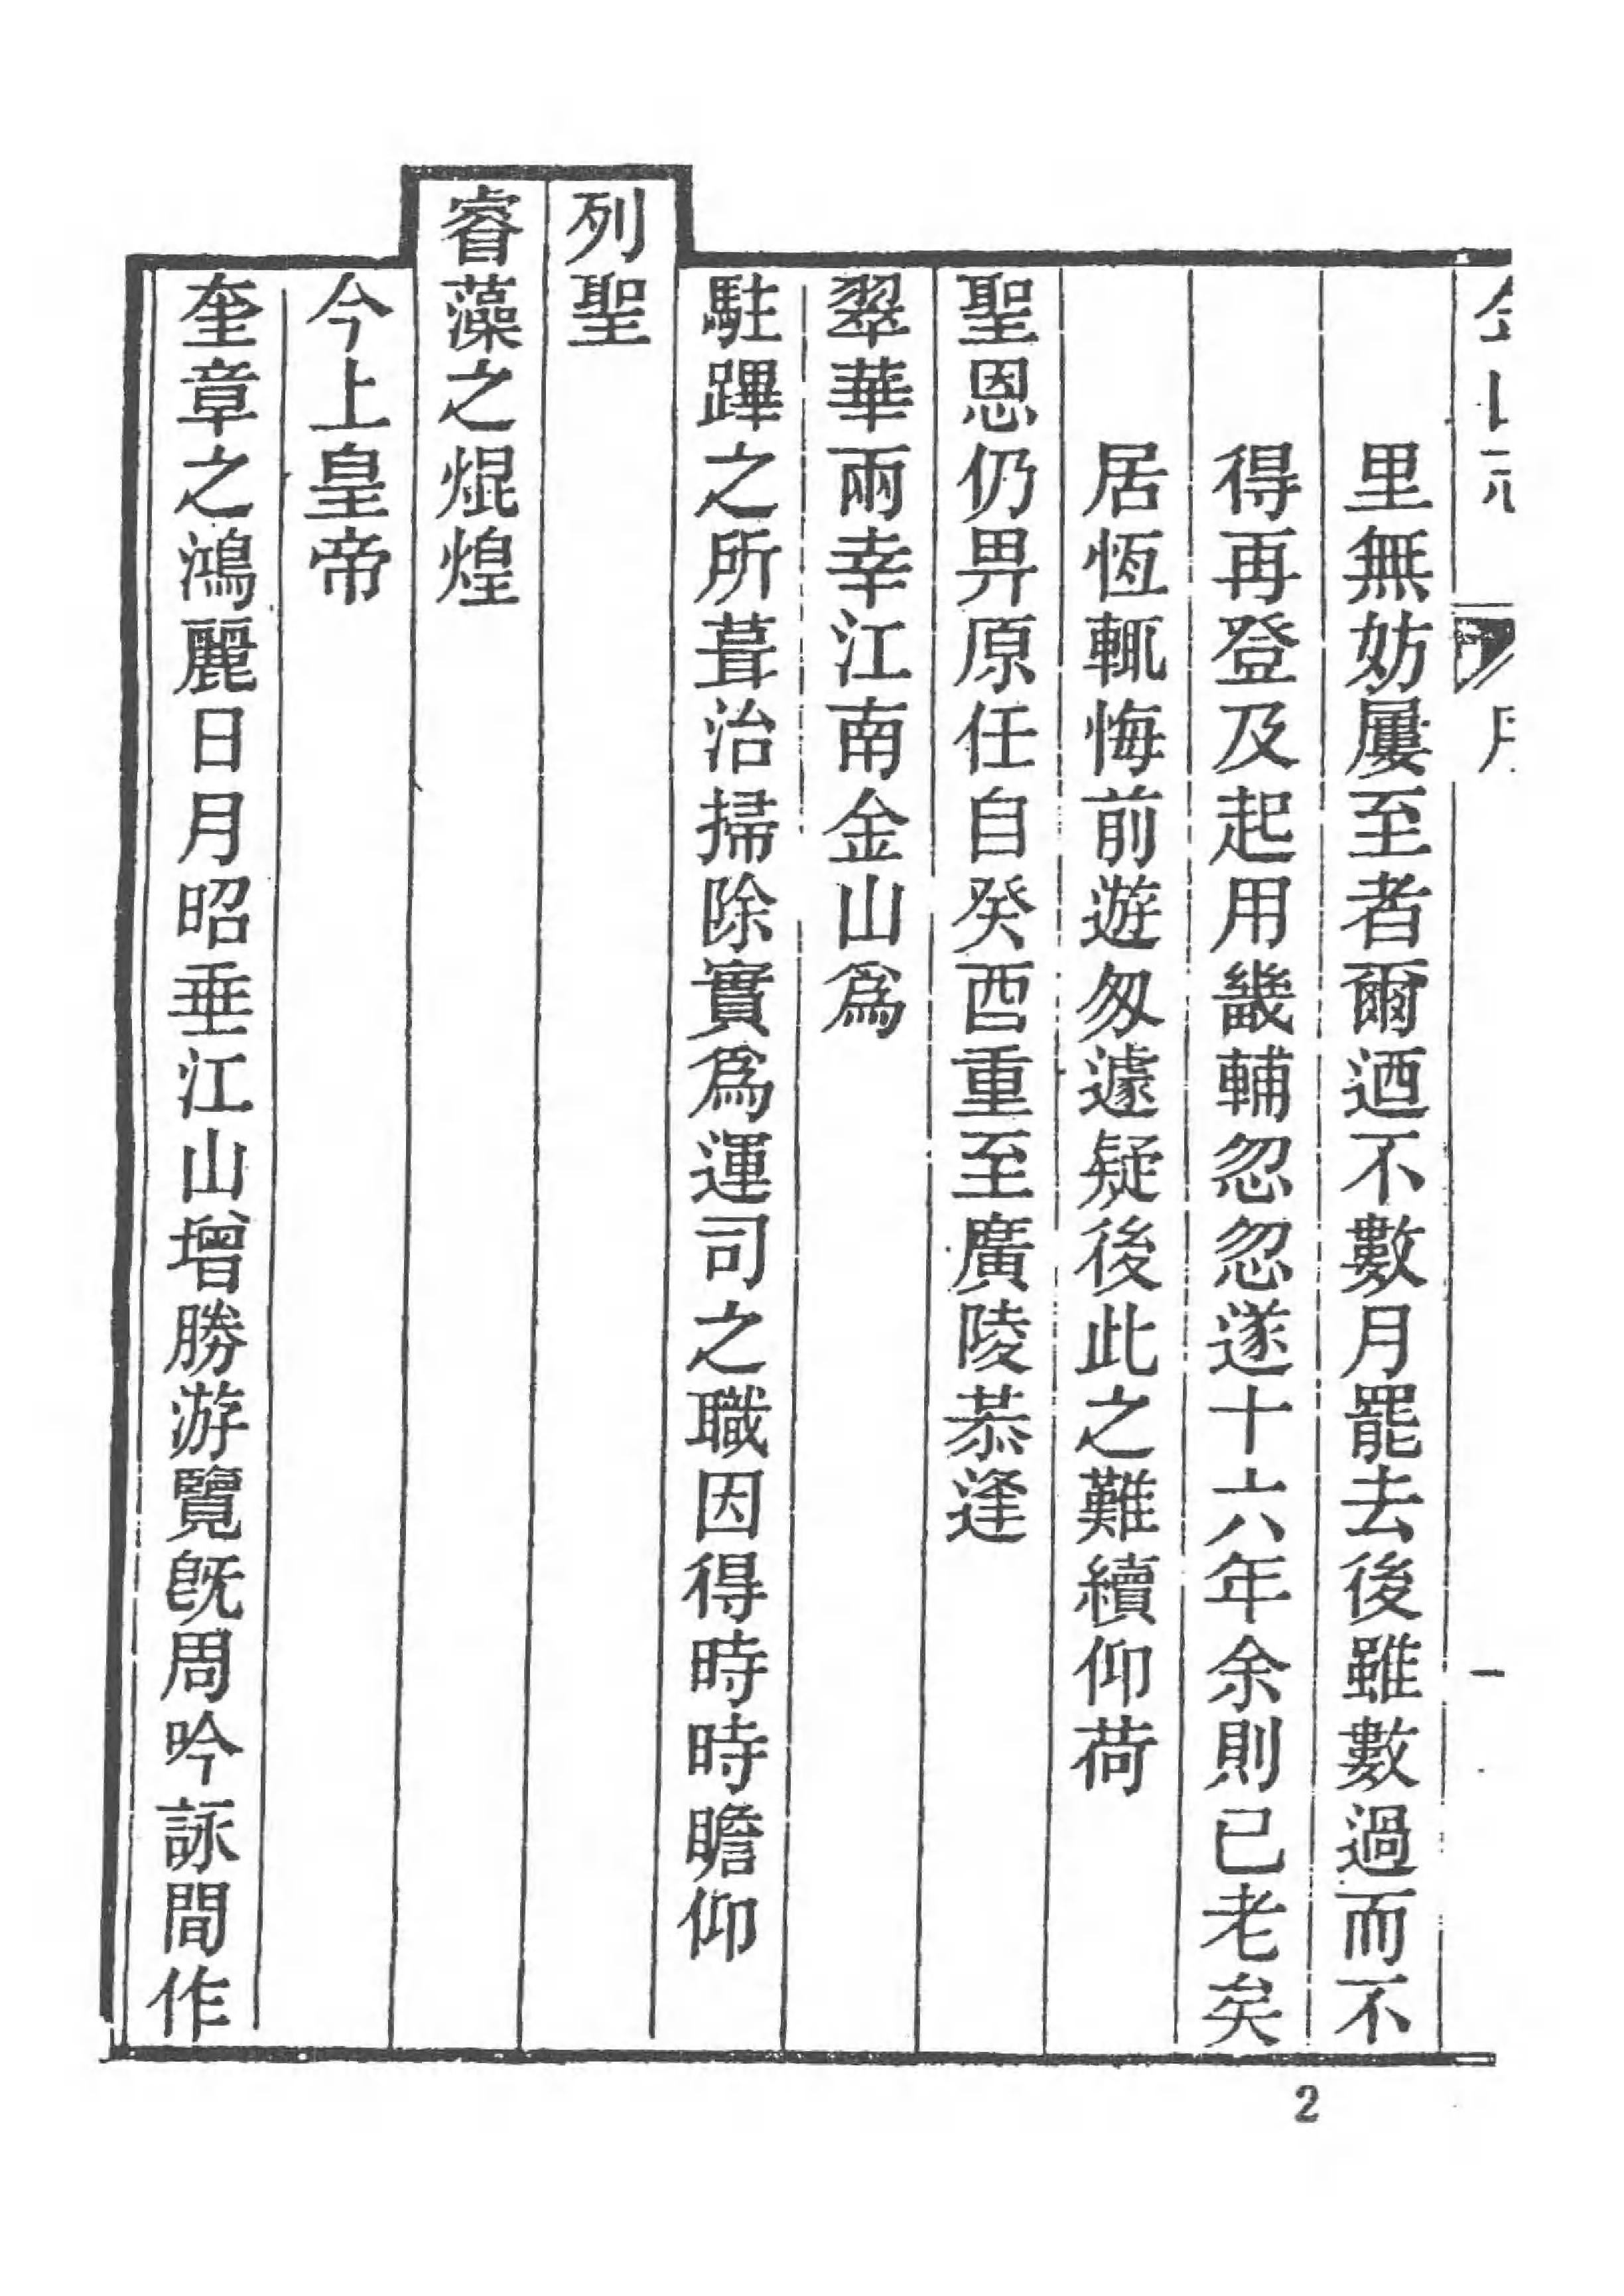 里無妨屢至者爾迺不數月罷去後雖數過而不
得再登及起用畿輔忽忽遂十六年余則已老矣
居恆輒悔前遊匆遽疑後此之難續仰荷
聖恩仍畀原任自癸酉重至廣陵恭逢
翠華兩幸江南金山爲
駐蹕之所葺治掃除實爲運司之職因得時時瞻仰
列聖
睿藻之焜煌
今上皇帝
奎章之鴻麗日月昭垂江山增勝游覽旣周吟詠間作
2